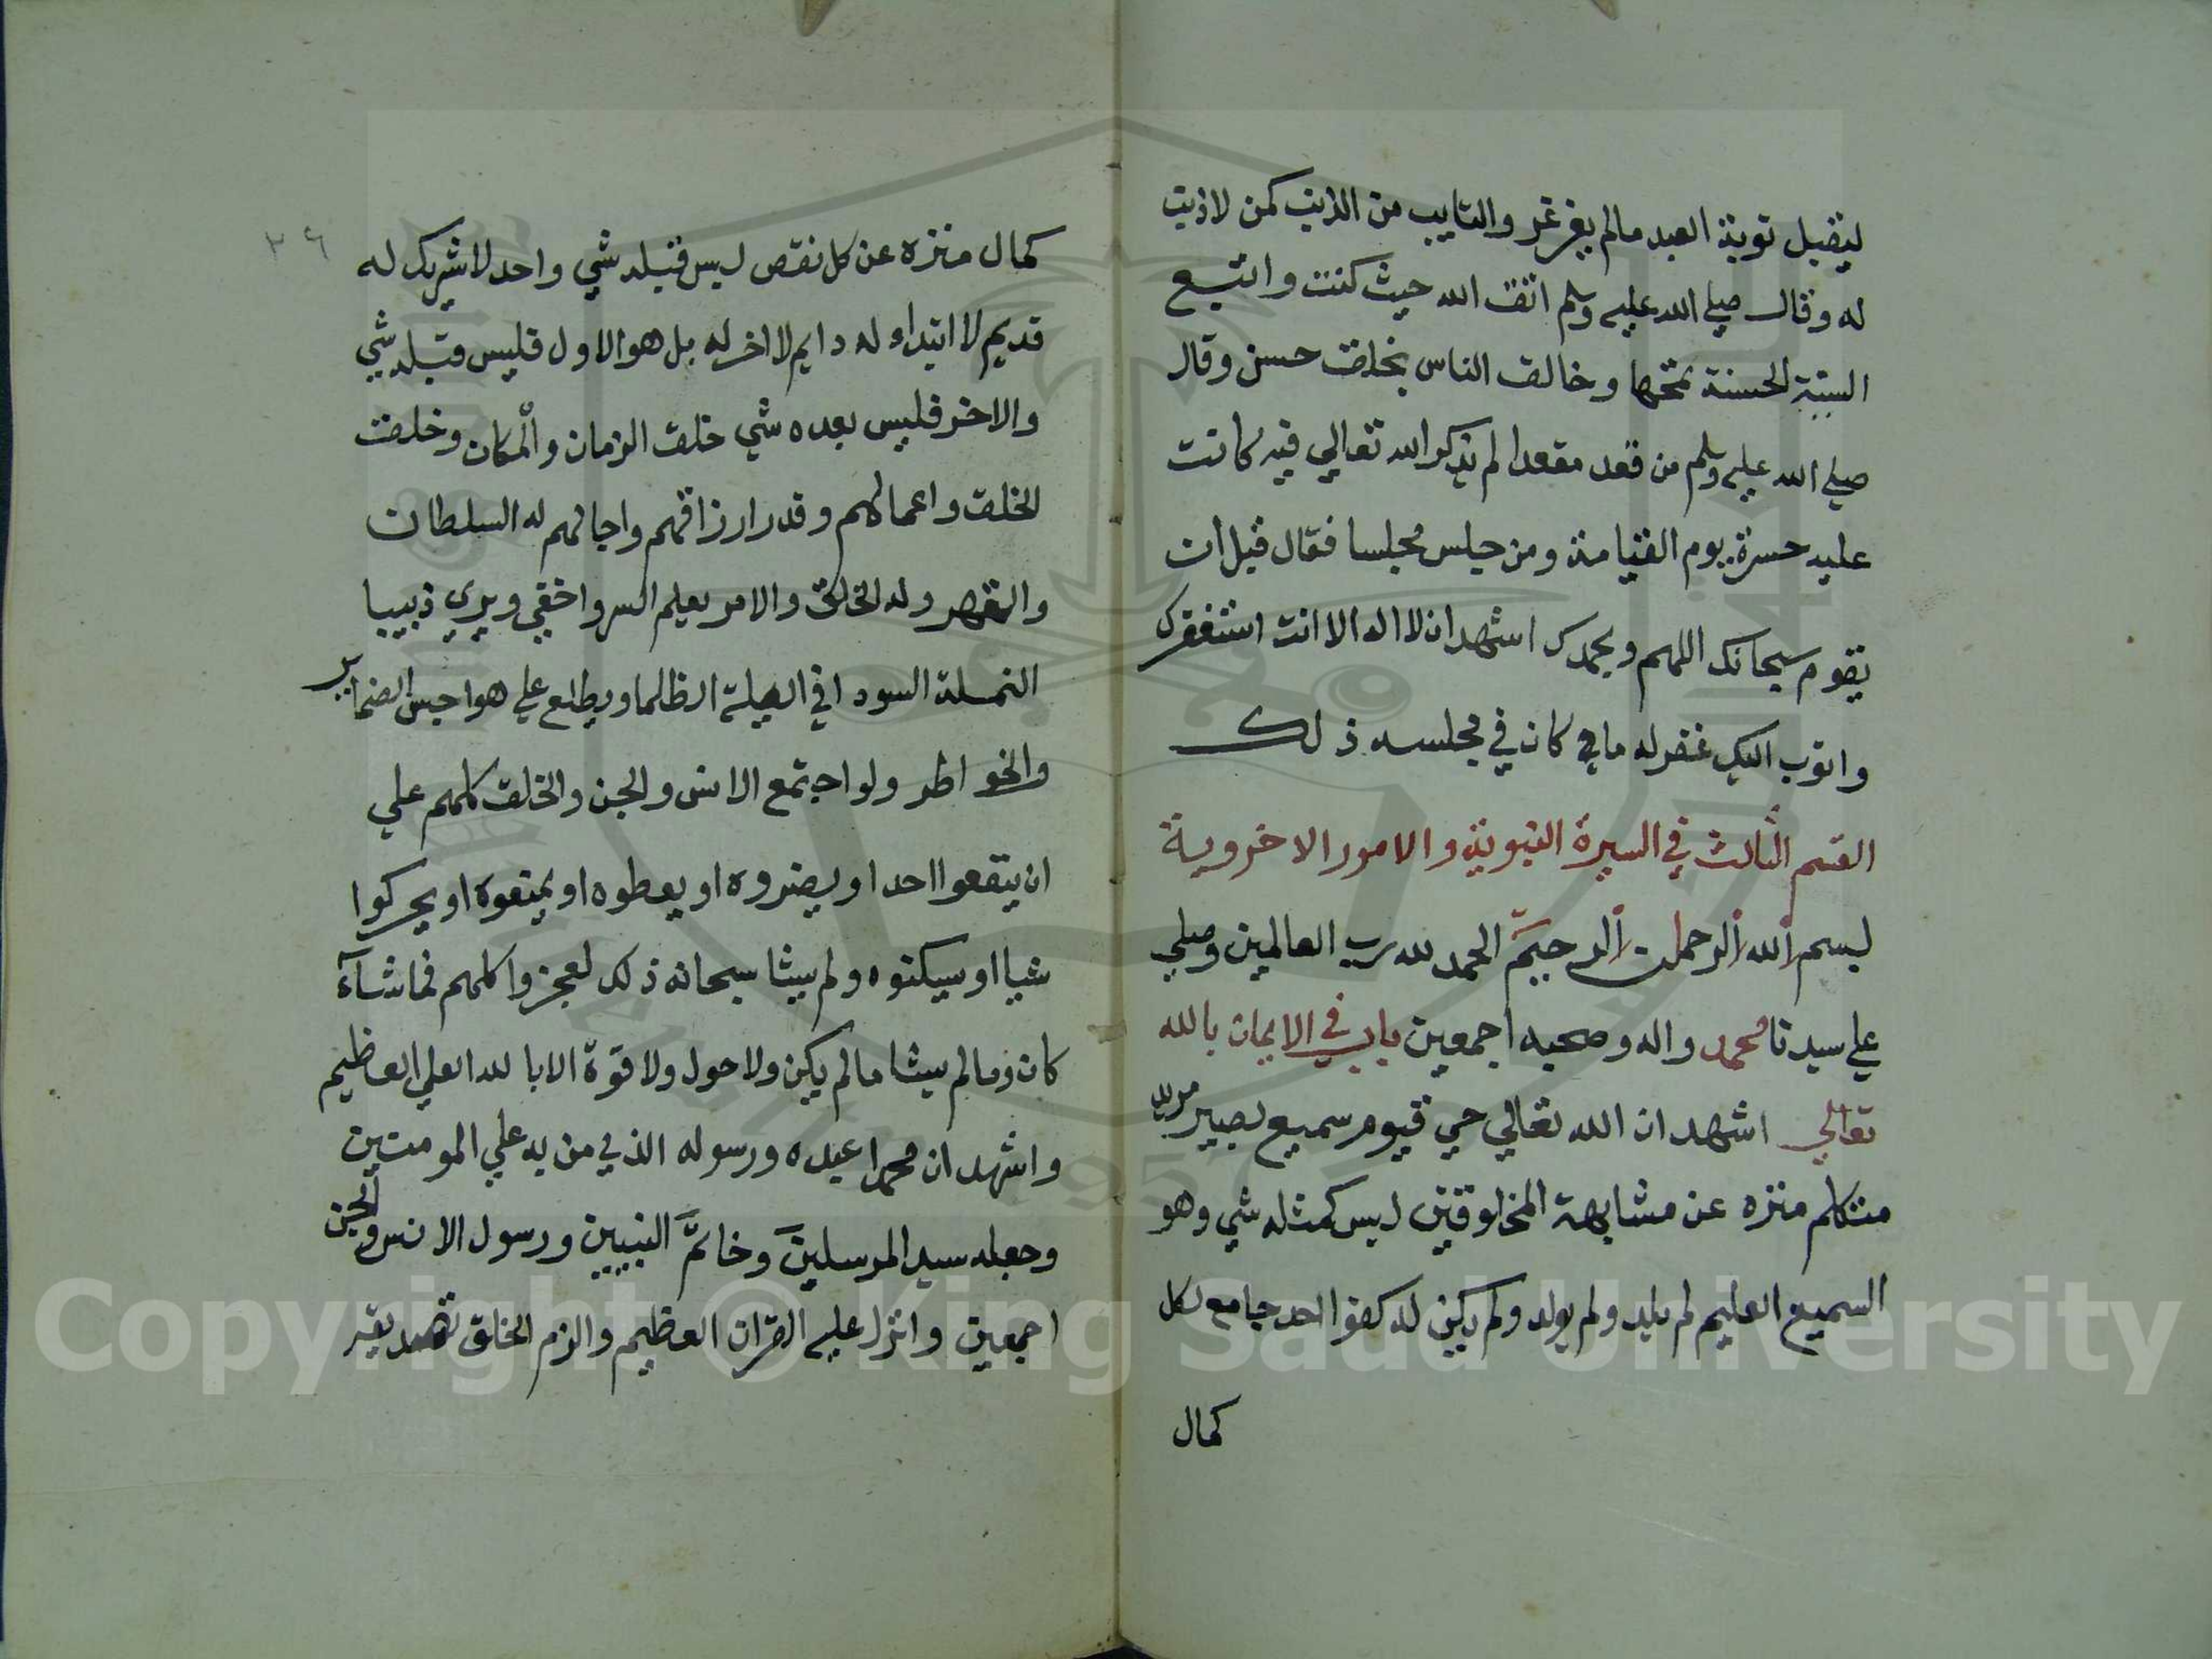 ليقبل توبة العبد مالم يغرغر والتايب من الذنب كمن لا ذنب
له وقال صلي الله عليه وسلم اتق الله حيث كنت واتبع
السيئة الحسنة تمحها وخالق الناس بخلق حسن وقال
صلي الله عليه وسلم من قعد مقعدا لم يذكر الله تعالي فيه كانت
عليه حسرة يوم القيامة ومن جلس مجلسا فقال قبل ان
يقوم سبحانك اللهم وبحمدك اشهد ان لا اله الا انت استغفرك
واتوب اليك غفر له ما كان في مجلسه ذلك
القسم الثالث في السيرة النبوية والامور الاخروية
بسم الله الرحمن الرحيم الحمد لله رب العالمين وصلي
علي سيدنا محمد واله وصحبه اجمعين باب في الايمان بالله
تعالي اشهد ان الله تعالي حي قيوم سميع بصير مريد
متكلم منزه عن مشابهة المخلوقين ليس كمثله شي وهو
السميع العليم لم يلد ولم يولد ولم يكن له كفوا احد جامع لكل
كمال
٣٦
كمال منزه عن كل نقص ليس قبله شي واحد لا شريك له
قديم لا ابتداء له دايم لا اخر له بل هو الاول فليس قبله شي
والاخر فليس بعده شي خلق الزمان والمكان وخلق
الخلق واعمالهم وقدر ارزاقهم واجالهم له السلطان
والقهر وله الخلق والامر يعلم السر واخفي ويري دبيب
النملة السودا في الليلة الظلما ويطلع علي هواجس الضماير
والخواطر ولو اجتمع الانس والجن والخلق كلهم علي
ان ينفعوا احدا ويضروه او يعطوه او يمنعوه او يحركوا
شيا او سيكنوه ولم يشا سبحانه ذلك لعجزوا كلهم فما شآء
كان وما لم يشا مالم يكن ولا حول ولا قوة الا بالله العلي العظيم
واشهد ان محمدا عبده ورسوله الذي من به علي المومنين
وجعله سيد المرسلين وخاتم النبيين ورسول الانس والجن
اجمعين وانزل عليه القران العظيم والزم الخلق تصديقه
Copyright © King Saud University
1957